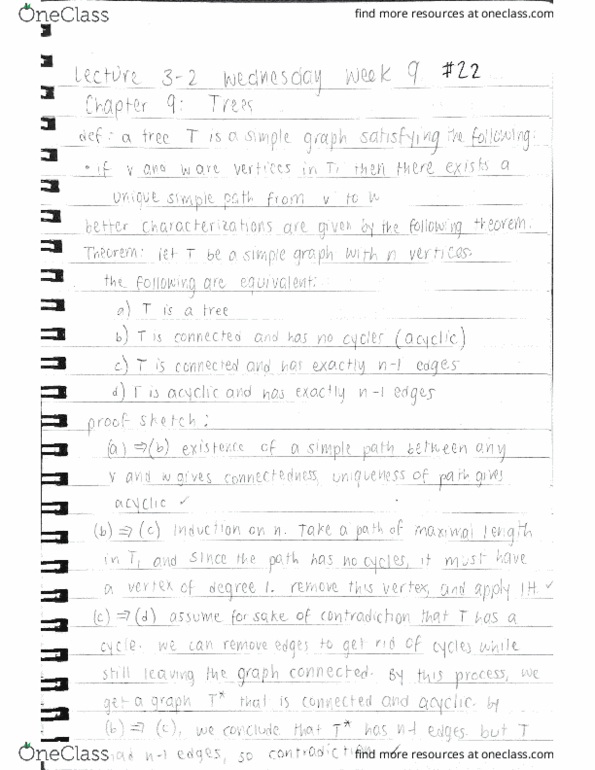 OneClass
find more resources at oneclass.com
Lecture 3-2 Wednesday Week 9 #22
Chapter 9: Trees
def: a tree T is a simple graph satisfying the following:
• if v and w are vertices in T, then there exists a
unique simple path from v to w
better characterizations are given by the following theorem.
Theorem: let T be a simple graph with n vertices.
the following are equivalent:
a) T is a tree
b) T is connected and has no cycles (acyclic)
c) T is connected and has exactly n-1 edges
d) T is acyclic and has exactly n-1 edges
proof sketch:
(a) ⇒ (b) existence of a simple path between any
v and w gives connectedness, uniqueness of path gives
acyclic ✓
(b) ⇒ (c) induction on n. Take a path of maximal length
in T, and since the path has no cycles, it must have
a vertex of degree 1. remove this vertex, and apply IH. ✓
(c) ⇒ (d) assume for sake of contradiction that T has a
cycle. we can remove edges to get rid of cycles while
still leaving the graph connected. By this process, we
get a graph T* that is connected and acyclic. by
(b) ⇒ (c), we conclude that T* has n-1 edges. but T
had n-1 edges, so contradiction ✓
OneClass
find more resources at oneclass.com